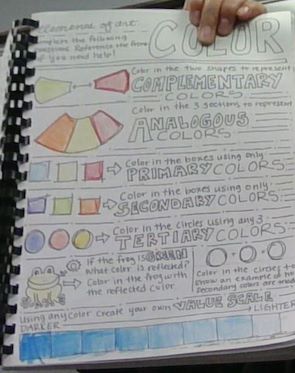 Elements of art:
COLOR
Complete the following
questions. Reference the front
if you need help!
Color in the two shapes to represent
COMPLEMENTARY
COLORS
Color in the 3 sections to represent
ANALOGOUS
COLORS
Color in the boxes using only
PRIMARY COLORS
Color in the boxes using only
SECONDARY COLORS
Color in the circles using any 3
TERTIARY COLORS
If the frog is GREEN
what color is reflected?
Color in the frog with
the reflected color
Color in the circles to
show an example of how
secondary colors are made
Using any color create your own VALUE SCALE
DARKER
LIGHTER